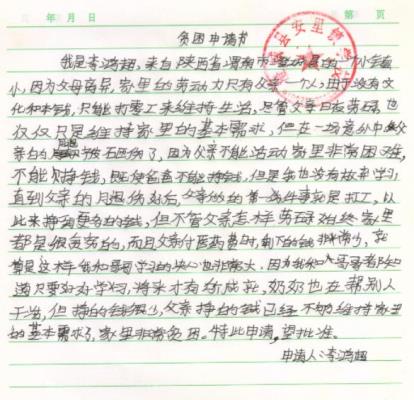 年 月 日 第 页
贫困申请书
我是李鸿超,来自陕西省渭南市
小,因为父母离异,家里的劳动力只有父亲一个人,由于没有文
化和本钱,只能打零工来维持生活,尽管父亲日夜劳碌,也
仅仅只是维持家里的基本需求,但在一场意外中父
亲的腿被石砸伤了,因为父亲不能活动家里非常困难,
不能挣钱,既使爸爸不能挣钱,但是我也没有放弃学习,
直到父亲的腿伤好后,父亲做的第一件事就是打工,以
此来挣到更多的钱,但不管父亲怎样劳碌到终家里
都是很贫穷的,而且父亲付医药费时,剩下的钱非常少,就
算是这样我和哥哥学习的决心也非常大,因为我和哥哥都知
道只要好好学习,将来才有所成就,奶奶也在帮别人
干活,但挣的钱很少,父亲挣的钱已经不够维持家里
的基本需求了,家里非常贫困。特此申请,望批准。
申请人:李鸿超